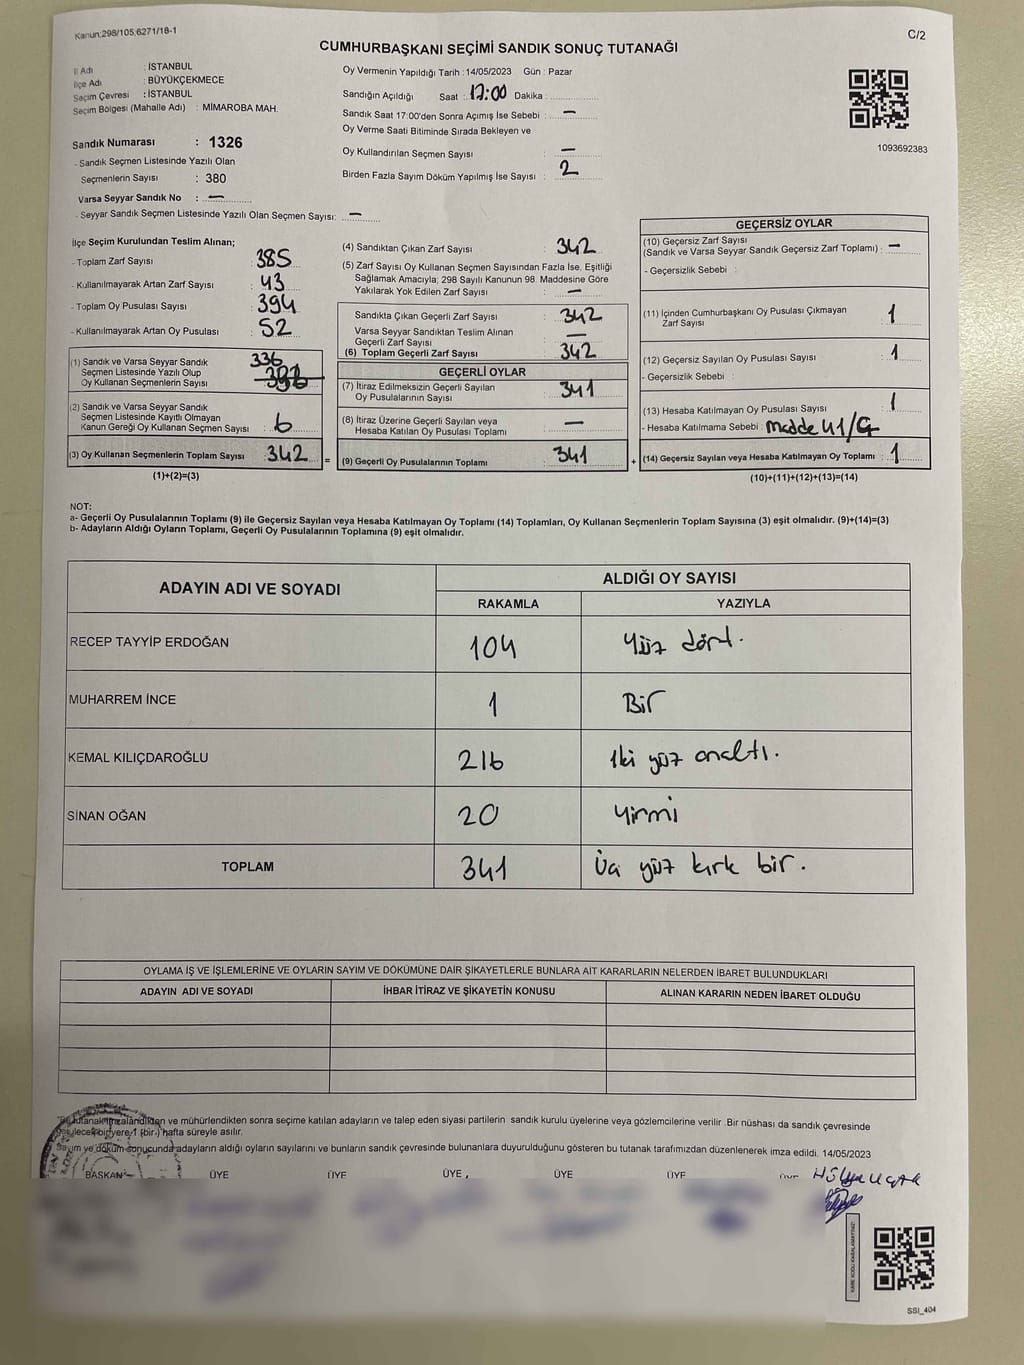 Kanun:298/105;6271/18-1
C/2
CUMHURBAŞKANI SEÇİMİ SANDIK SONUÇ TUTANAĞI
İl Adı : İSTANBUL
İlçe Adı : BÜYÜKÇEKMECE
Seçim Çevresi : İSTANBUL
Seçim Bölgesi (Mahalle Adı) : MİMAROBA MAH.
Sandık Numarası : 1326
- Sandık Seçmen Listesinde Yazılı Olan
Seçmenlerin Sayısı : 380
Varsa Seyyar Sandık No : —
- Seyyar Sandık Seçmen Listesinde Yazılı Olan Seçmen Sayısı: —
Oy Vermenin Yapıldığı Tarih :14/05/2023 Gün : Pazar
Sandığın Açıldığı Saat : 17:00 Dakika :
Sandık Saat 17:00'den Sonra Açımış İse Sebebi : —
Oy Verme Saati Bitiminde Sırada Bekleyen ve
Oy Kullandırılan Seçmen Sayısı : —
Birden Fazla Sayım Döküm Yapılmış İse Sayısı : 2
1093692383
İlçe Seçim Kurulundan Teslim Alınan;
- Toplam Zarf Sayısı : 385
- Kullanılmayarak Artan Zarf Sayısı : 43
- Toplam Oy Pusulası Sayısı : 394
- Kullanılmayarak Artan Oy Pusulası : 52
(1) Sandık ve Varsa Seyyar Sandık 336
Seçmen Listesinde Yazılı Olup
Oy Kullanan Seçmenlerin Sayısı
(2) Sandık ve Varsa Seyyar Sandık
Seçmen Listesinde Kayıtlı Olmayan
Kanun Gereği Oy Kullanan Seçmen Sayısı : 6
(3) Oy Kullanan Seçmenlerin Toplam Sayısı : 342
(1)+(2)=(3)
(4) Sandıktan Çıkan Zarf Sayısı : 342
(5) Zarf Sayısı Oy Kullanan Seçmen Sayısından Fazla İse, Eşitliği
Sağlamak Amacıyla; 298 Sayılı Kanunun 98. Maddesine Göre
Yakılarak Yok Edilen Zarf Sayısı : —
Sandıkta Çıkan Geçerli Zarf Sayısı : 342
Varsa Seyyar Sandıktan Teslim Alınan
Geçerli Zarf Sayısı : —
(6) Toplam Geçerli Zarf Sayısı : 342
=
GEÇERLİ OYLAR
(7) İtiraz Edilmeksizin Geçerli Sayılan
Oy Pusulalarının Sayısı : 341
(8) İtiraz Üzerine Geçerli Sayılan veya
Hesaba Katılan Oy Pusulası Toplamı : —
(9) Geçerli Oy Pusulalarının Toplamı : 341
+
GEÇERSİZ OYLAR
(10) Geçersiz Zarf Sayısı
(Sandık ve Varsa Seyyar Sandık Geçersiz Zarf Toplamı) : —
- Geçersizlik Sebebi :
(11) İçinden Cumhurbaşkanı Oy Pusulası Çıkmayan
Zarf Sayısı : 1
(12) Geçersiz Sayılan Oy Pusulası Sayısı : 1
- Geçersizlik Sebebi :
(13) Hesaba Katılmayan Oy Pusulası Sayısı : 1
- Hesaba Katılmama Sebebi : madde 41/G
(14) Geçersiz Sayılan veya Hesaba Katılmayan Oy Toplamı : 1
(10)+(11)+(12)+(13)=(14)
NOT:
a- Geçerli Oy Pusulalarının Toplamı (9) ile Geçersiz Sayılan veya Hesaba Katılmayan Oy Toplamı (14) Toplamları, Oy Kullanan Seçmenlerin Toplam Sayısına (3) eşit olmalıdır. (9)+(14)=(3)
b- Adayların Aldığı Oyların Toplamı, Geçerli Oy Pusulalarının Toplamına (9) eşit olmalıdır.
ADAYIN ADI VE SOYADI
ALDIĞI OY SAYISI
RAKAMLA YAZIYLA
RECEP TAYYİP ERDOĞAN 104 Yüz dört.
MUHARREM İNCE 1 Bir
KEMAL KILIÇDAROĞLU 216 İki yüz onaltı.
SİNAN OĞAN 20 Yirmi
TOPLAM 341 Üç yüz kırk bir.
OYLAMA İŞ VE İŞLEMLERİNE VE OYLARIN SAYIM VE DÖKÜMÜNE DAİR ŞİKAYETLERLE BUNLARA AİT KARARLARIN NELERDEN İBARET BULUNDUKLARI
ADAYIN ADI VE SOYADI İHBAR İTİRAZ VE ŞİKAYETİN KONUSU ALINAN KARARIN NEDEN İBARET OLDUĞU
ve mühürlendikten sonra seçime katılan adayların ve talep eden siyasi partilerin sandık kurulu üyelerine veya gözlemcilerine verilir. Bir nüshası da sandık çevresinde
bir yere 1 (bir) hafta süreyle asılır.
Sayım ve döküm sonucunda adayların aldığı oyların sayılarını ve bunların sandık çevresinde bulunanlara duyurulduğunu gösteren bu tutanak tarafımızdan düzenlenerek imza edildi. 14/05/2023
BAŞKAN ÜYE ÜYE ÜYE ÜYE ÜYE
SSI_404